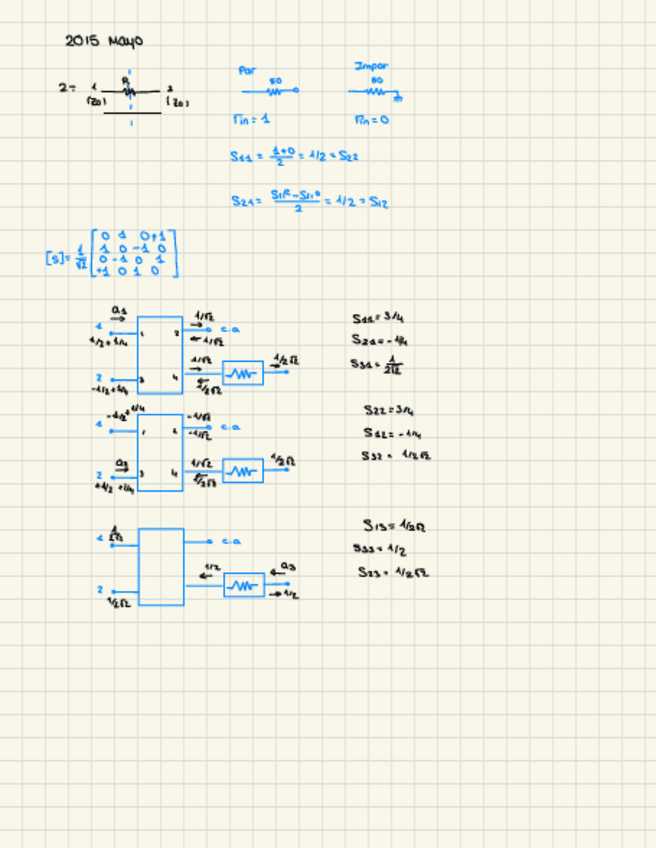 2015 Mayo
2:- 1 R 2
(Z0) (Z0)
Par Impar
50 50
Γin = 1 Γin = 0
S11 = (1+0)/2 = 1/2 = S22
S21 = (S11e - S11o)/2 = 1/2 = S12
[S] = 1/√2
0 1 0 +1
1 0 -1 0
0 -1 0 1
+1 0 1 0
a1
1 1 2 1/√2 c.a
1/2+1/4 1/√2
2 3 4 1/√2 1/2√2
-1/2+1/4 1/2√2
S11 = 3/4
S21 = -1/4
S31 = 1/2√2
-1/2+1/4
1 1 2 -1/√2 c.a
-1/√2
a2
2 3 4 1/√2 1/2√2
+1/2+1/4 1/2√2
S22 = 3/4
S12 = -1/4
S32 = 1/2√2
1 1/2√2 c.a
1/2 a3
2 1/2
1/2√2
S13 = 1/2√2
S33 = 1/2
S23 = 1/2√2